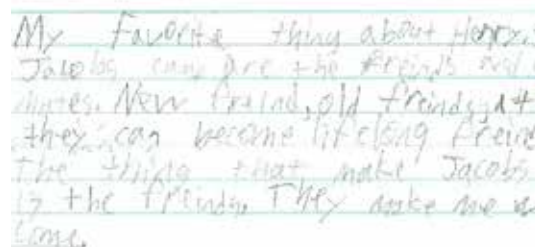 My Favorite thing about Henry.
Jacobs camp are the freinds and
mates. New freind, old freinds, at
they can become lifelong freind
The thing that make Jacobs
is the freinds. They make me
come.